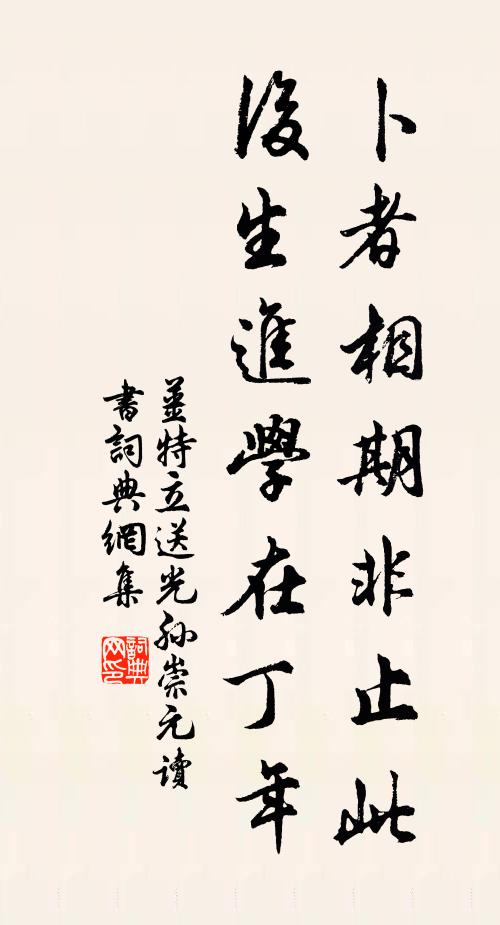 卜者相期非止此
後生進學在丁年
姜特立送光孫崇元讀
書詞典網集
詞典
网印